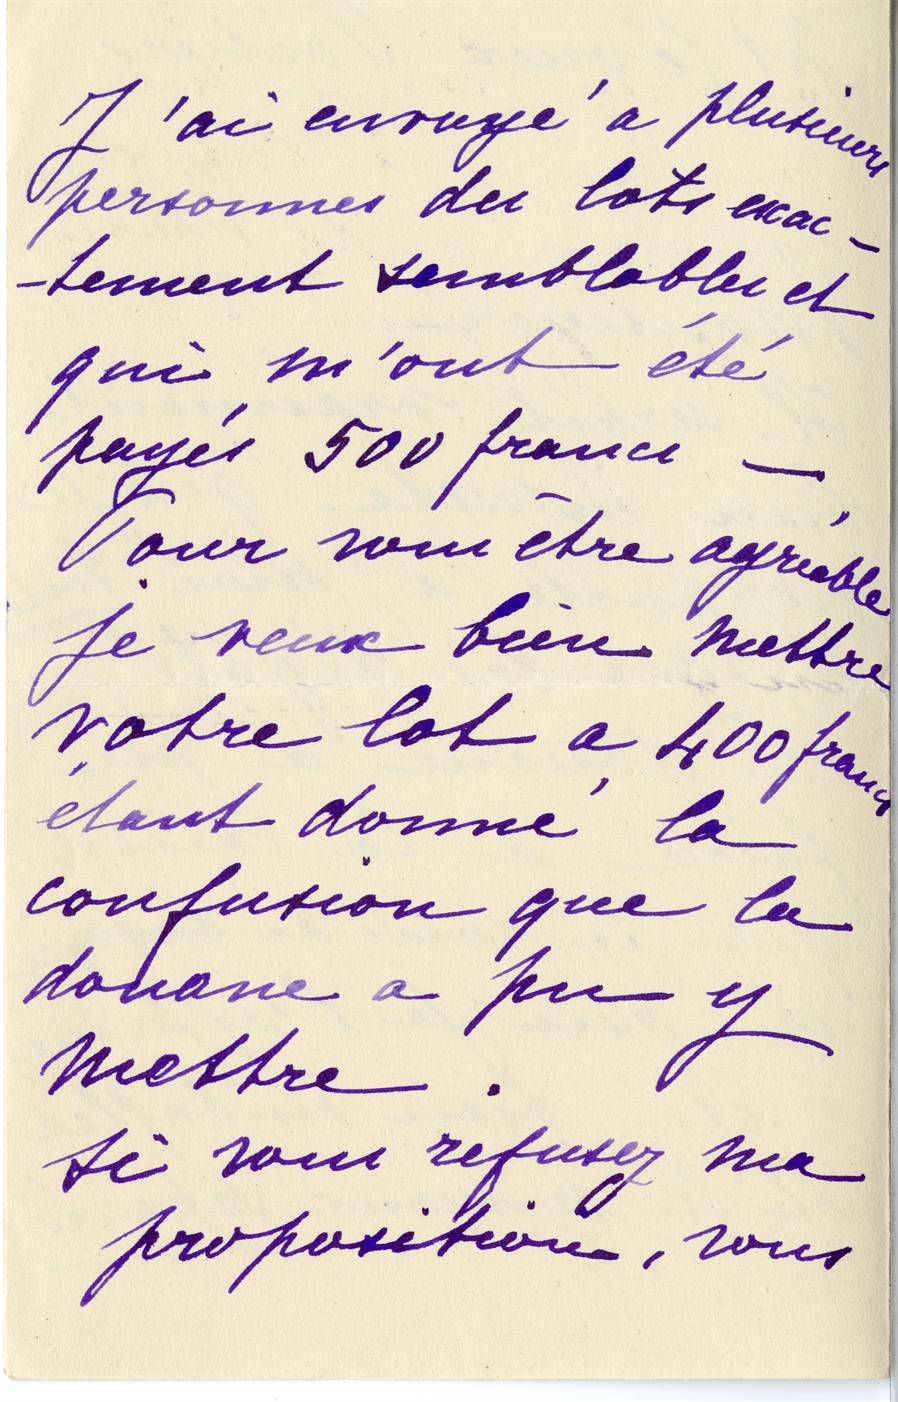 J'ai envoyé a plusieurs
personnes des lots exac-
-tement semblables et
qui m'ont été
payés 500 francs —
Pour vous être agréable
je veux bien mettre
votre lot a 400 francs
étant donné la
confusion que la
douane a pu y
mettre.
si vous refusez ma
proposition, vous